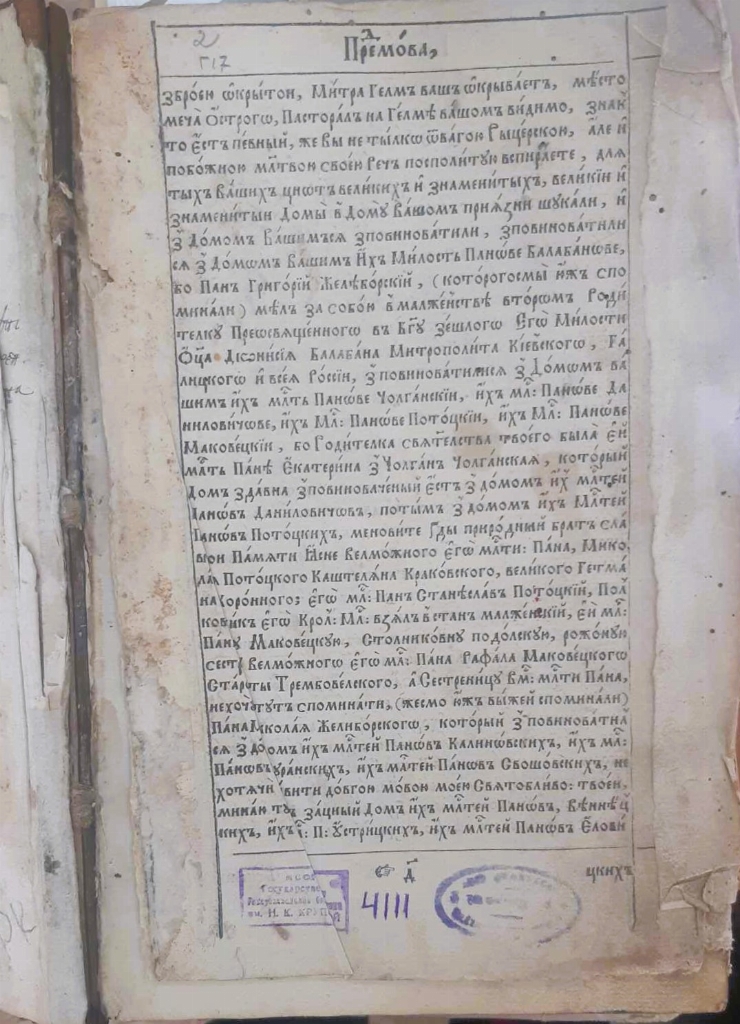 2
Г17
Пре҇дмо́ва,
зброєи ѡкры́тои, Ми́тра Гелмъ вашъ ѡкрыва́етъ, мѣ́сто
меча̀ О́строгѡ, Пасторалъ на Ге́лмѣ ва́шомъ ви́димо, знакъ
то є́стъ пе́вный, же вы не ты́лкѡ ѿва́гою Рыце́рскою, а́ле и҆
побо́жною мл҃твою своєю Речъ посполи́тую вспира́ете, для
ты́хъ ва́шихъ цно́тъ вели́кихъ и҆ знамени́тыхъ, вели́кїи и҆
знамени́тыи До́мы в До́му Ва́шомъ прїꙗ́зни шука́ли, и҆
з До́момъ ва́шимъ сѧ зповинова́тили, зповинова́тили
сѧ з До́мѡмъ ва́шимъ И҆хъ Ми́лость Пано́ве Балаба́нѡве,
бо Панъ Григо́рїй Желѣбо́рскїй, (кото́рогосмы ю҆жъ спо
мина́ли) мѣлъ за собо́ю в малже́нствѣ второмъ Роди́
телку Преѡсвѧще́нного в Бг҃у зе́шлого Єго̀ Ми́лости
Ѻ҆ц҃а Дїѡни́сїѧ Балаба́на Митрополи́та Кїе́вского, Га́
лицкого и҆ всеѧ̀ Ро́ссїи, зповинова́тилисѧ з До́момъ ва́
шимъ и҆хъ мл҃ть Пано́ве Чолга́нскїи, и҆хъ мл҃: Пано́ве Да
нило́вичѡве, и҆хъ Мл҃: Пано́ве Пото́цкїи, и҆хъ Мл҃: Пано́ве
Макове́цкїи, бо Роди́телка свѧти́телства твоего̀ была̀ є҆й
мл҃ть Па́нѣ Єкатери́на з Чолга́нъ Чолга́нская, кото́рый
Домъ зда́вна зповинова́чєный є́стъ з до́момъ и҆хъ мл҃тей
Пано́въ Дани́ловичѡвъ, пото́мъ з до́момъ и҆хъ Мл҃тей
Пано́въ Пото́цкихъ, менови́те Гды приро́дный братъ сла́
вои Па́мѧти Ꙗ҆сне Велмо́жного є҆го̀ мл҃ти: Па́на, Мико
лаѧ Пото́цкого Каштелѧ́на Крако́вского, вели́кого Ге́тма
на коро́нного; є҆го̀ мл҃: Панъ Станѣсла́въ Пото́цкїй, Пол
ко́викъ є҆го̀ Крол: Мл҃: взѧ́лъ в станъ малже́нскїй, є҆й мл҃:
Па́ну Макове́цкую, Сто́лниковну подо́лскую, рожо́ную
сестру Велмо́жного є҆го̀ мл҃: Па́на Рафа́ла Макове́цкого
Ста́росты Трембове́лского, а҆ Сестрени́цу вм҃: мл҃ти Па́на,
не хочу тутъ спомина́ти, (жесмо ю҆жъ вы́жей спомина́ли)
Па́на Миколая Желибо́рского, кото́рый зповинова́тил
сѧ з домомъ и҆хъ мл҃тей Пано́въ Калино́вскихъ, и҆хъ мл҃:
Пано́въ уранскихъ, и҆хъ мл҃тей Пано́въ Свошо́вскихъ, не
хотѧчи бавити до́вгою мо́вою моею Свѧтобли́во: твоєи,
мина́ю тутъ за́цный Домъ и҆хъ мл҃тей Пано́въ, Вѣннѣц
кихъ, и҆хъ мл҃: П: Устри́цкихъ, и҆хъ мл҃тей Пано́въ Єлови́
д҃
цкихъ
БССР
Государстве
им. Н. К. КРУП
4111